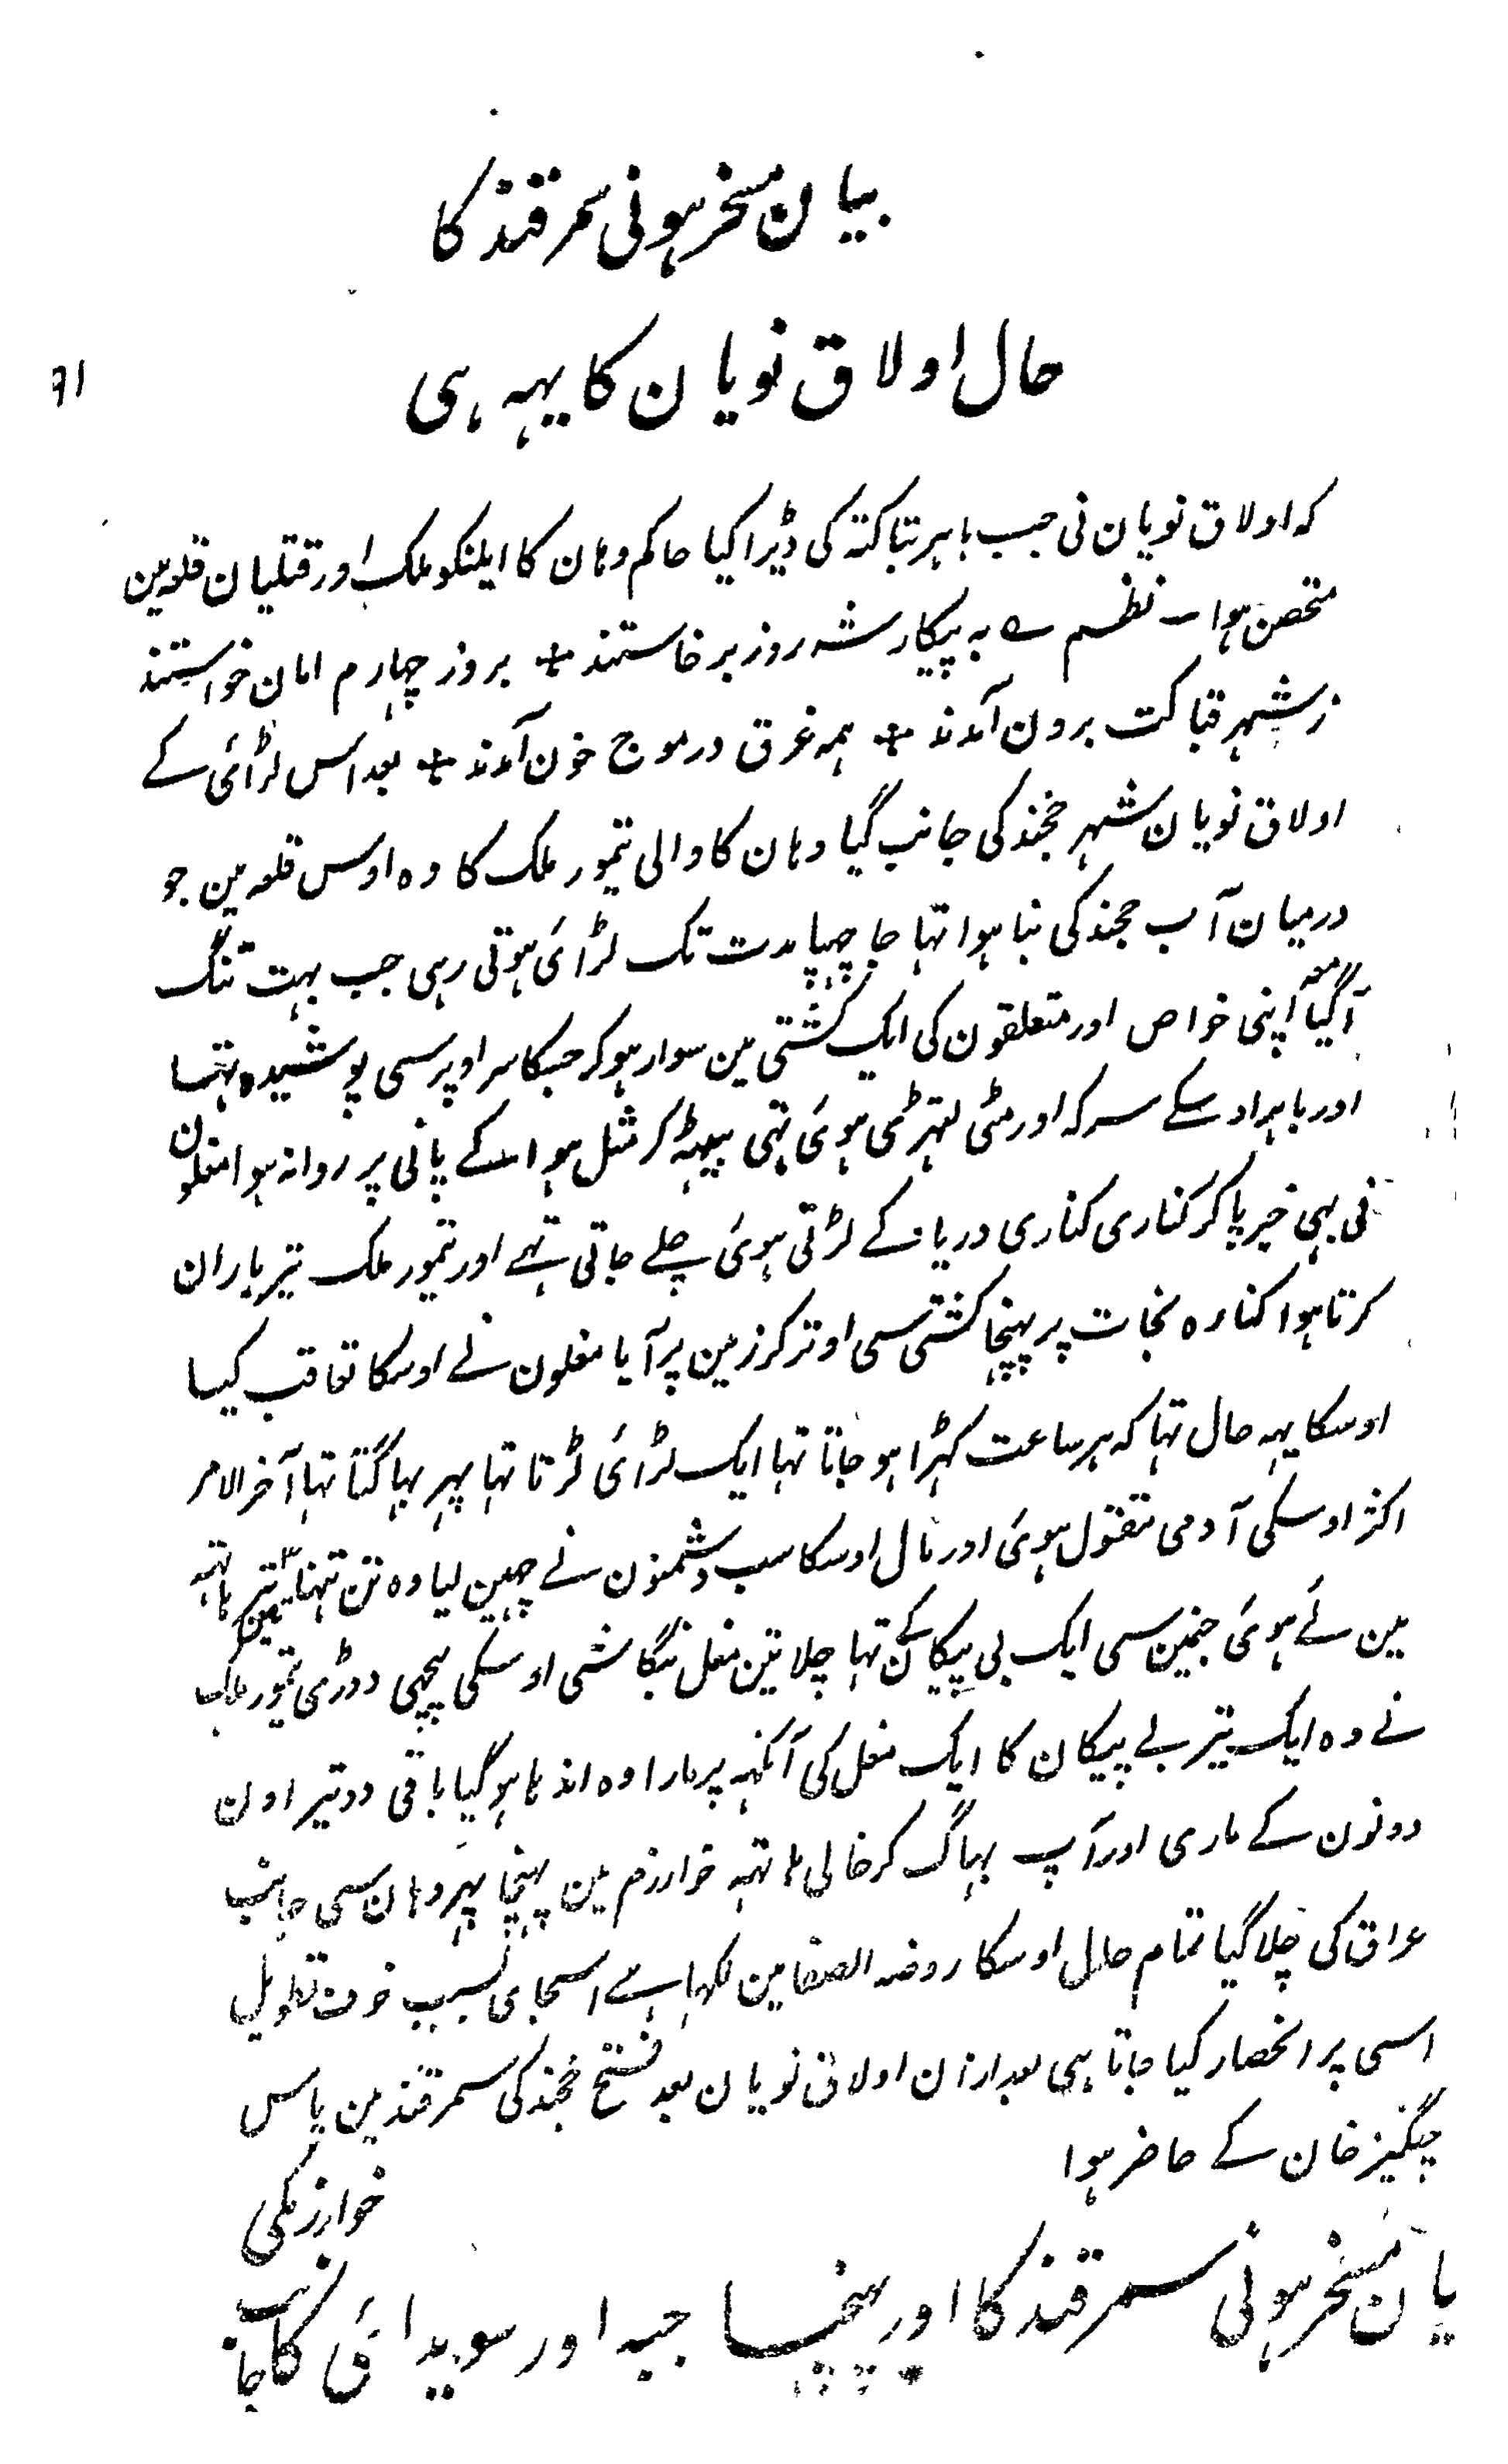 بیان مسخر ہونی سمرقند کا
۹۱
حال اولاق نویان کا یہہ ہی
کہ اولاق نویان نی جب باہر تباکتہ کی ڈیرا کیا حاکم وہان کا ایلنکو ملک اور قتلیان قلعہ مین
متحصن ہوا نظم بہ پیکار سہ روز برخاستند + بروز چہارم امان خواستند
ز شہر قباکت برون آمدند + ہمہ غرق در موج خون آمدند + بعد اس لڑائی کے
اولاق نویان شہر خجند کی جانب گیا وہان کا والی تیمور ملک کا وہ اوس قلعہ مین جو
درمیان آب خجند کی بنا ہوا تہا جا چہپا مدت تک لڑائی ہوتی رہی جب بہت تنگ
آگیا معہ اپنی خواص اور متعلقون کی ایک کشتی مین سوار ہو کر جسکا سر اوپر سی پوشیدہ تہا
اور باہر اوسکے سرکہ اور مٹی لتہڑی ہوئی تہی بیٹہہ کر مثل ہوا کے پانی پر روانہ ہوا مغلون
نی بہی خبر پا کر کناری کناری دریا کے لڑتی ہوئی چلے جاتی تہے اور تیمور ملک تیر باران
کرتا ہوا کنارہ نجات پر پہنچا کشتی سی اوتر کر زمین پر آیا مغلون نے اوسکا تعاقب کیا
اوسکا یہہ حال تہا کہ ہر ساعت کہڑا ہو جاتا تہا ایک لڑائی لڑتا تہا پہر بہاگتا تہا آخر الامر
اکثر اوسکی آدمی مقتول ہوئی اور مال اوسکا سب دشمنون نے چہین لیا وہ تن تنہا تین تیر ہاتہہ
مین لئے ہوئی جنمین سی ایک بی پیکان کے تہا چلا تین مغل تنگاشی اوسکی پیچہی دوڑی تیمور ملک
نے وہ ایک تیر بے پیکان کا ایک مغل کی آنکہہ پر مارا وہ اندہا ہو گیا باقی دو تیر اون
دونون کے ماری اور آپ بہاگ کر خالی ہاتہہ خوارزم مین پہنچا پہر وہان سی جانب
عراق کی چلا گیا تمام حال اوسکا روضہ الصفا مین لکہا ہے اسجای بسبب خوف تطویل
اسی پر انحصار کیا جاتا ہی بعد ازان اولاق نویان بعد فتح خجند کی سمرقند مین پاس
چنگیز خان کے حاضر ہوا
یان مسخر ہونی سمرقند کا اور پہنچنا جبہ اور سویدائی کا جانب خوارزم کی